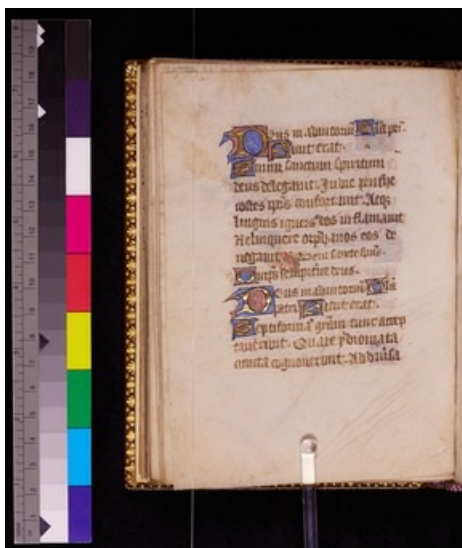 Deus in adiutoriū
Sicut erat.
sanctum spiritum
deus delegauit. In die penthe
costes ipōs confortauit. Atq;
linguis igneis eos inflamauit
Relinquere orphanos eos de
negauit. Veni sancte spūs.
Deus in adiutoriū
Sicut erat.
Septiformē grām tunc accep
tauerunt. Quare ydiomata
cuncta cognouerunt. Ad diūsa